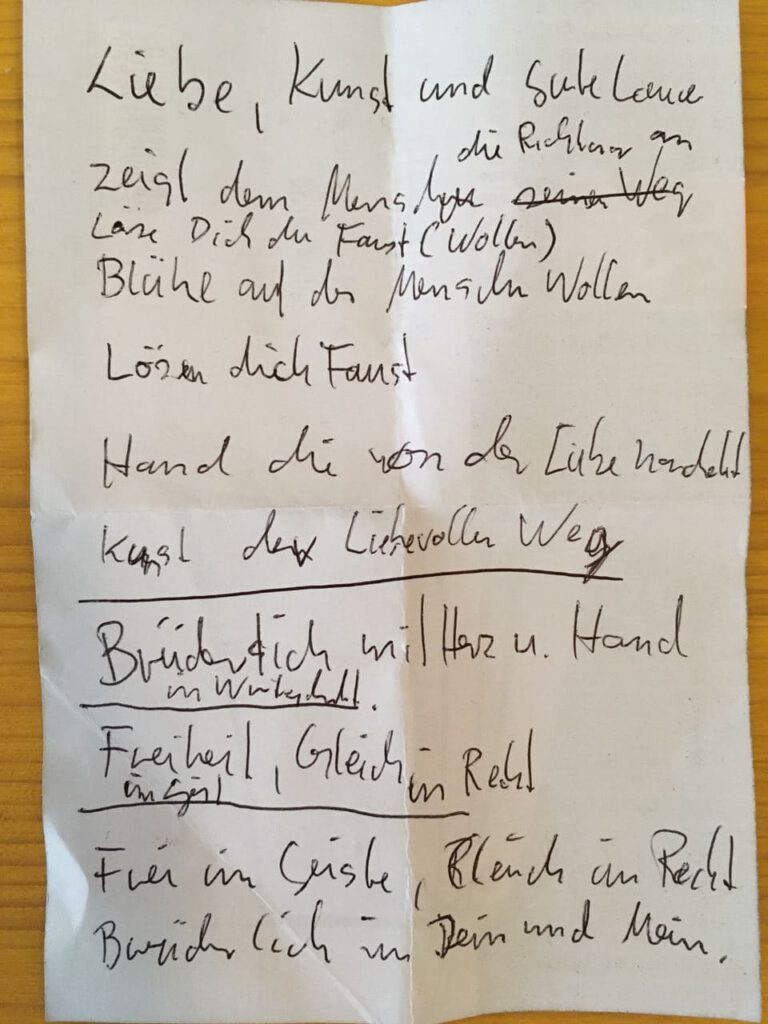 Liebe, Kunst und Gute Laune
die Richtung an
zeigt dem Menschen seinen Weg
Löse Dich du Faust (Wollen)
Blühe auf des Menschen Wollen
Lösen dich Faust
Hand die von der Liebe handelt
Kunst der Liebevoller Weg
Brüderlich mit Herz u. Hand
in Wirtschaft.
Freiheit, Gleich in Recht
im Geist
Frei im Geiste, Gleich im Recht
Brüderlich im Dein und Mein.